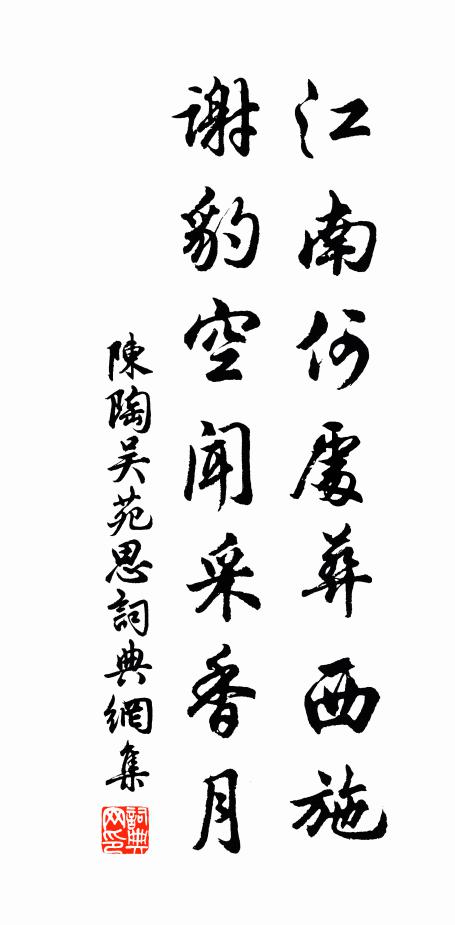 江南何處葬西施
謝豹空聞采香月
陳陶吴苑思詞典網集
詞典網印